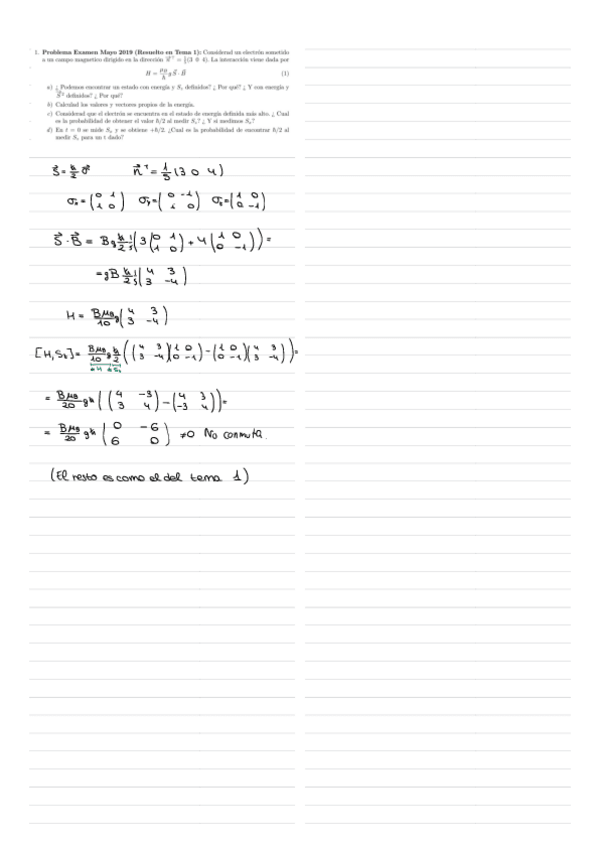 1. Problema Examen Mayo 2019 (Resuelto en Tema 1): Considerad un electrón sometido
a un campo magnetico dirigido en la dirección n⃗ ᵀ = 1/5 (3 0 4). La interacción viene dada por
H = μ_B/ħ g S⃗ · B⃗ (1)
a) ¿ Podemos encontrar un estado con energía y S_z definidos? ¿ Por qué? ¿ Y con energía y
S⃗² definidos? ¿ Por qué?
b) Calculad los valores y vectores propios de la energía.
c) Considerad que el electrón se encuentra en el estado de energía definida más alto. ¿ Cual
es la probabilidad de obtener el valor ħ/2 al medir S_z? ¿ Y si medimos
d) En t = 0 se mide y se obtiene +ħ/2. ¿Cual es la probabilidad de encontrar ħ/2 al
medir para un t dado?
S⃗ = ħ/2 σ⃗ n⃗ ᵀ = 1/5 (3 0 4)
σₓ = (0 1; 1 0) σᵧ = (0 -1; 1 0) σ_z = (1 0; 0 -1)
S⃗ · B⃗ = Bg ħ/2 1/5 (3 (0 1; 1 0) + 4 (1 0; 0 -1)) =
= gB ħ/2 1/5 (4 3; 3 -4)
H = Bμ_B/10 g (4 3; 3 -4)
[H, S_z] = Bμ_B/10 g ħ/2 ((4 3; 3 -4)(1 0; 0 -1) - (1 0; 0 -1)(4 3; 3 -4)) =
= Bμ_B/20 għ ((4 -3; 3 4) - (4 3; -3 4)) =
= Bμ_B/20 għ (0 -6; 6 0) ≠0 No conmuta.
(El resto es como el del tema 1)